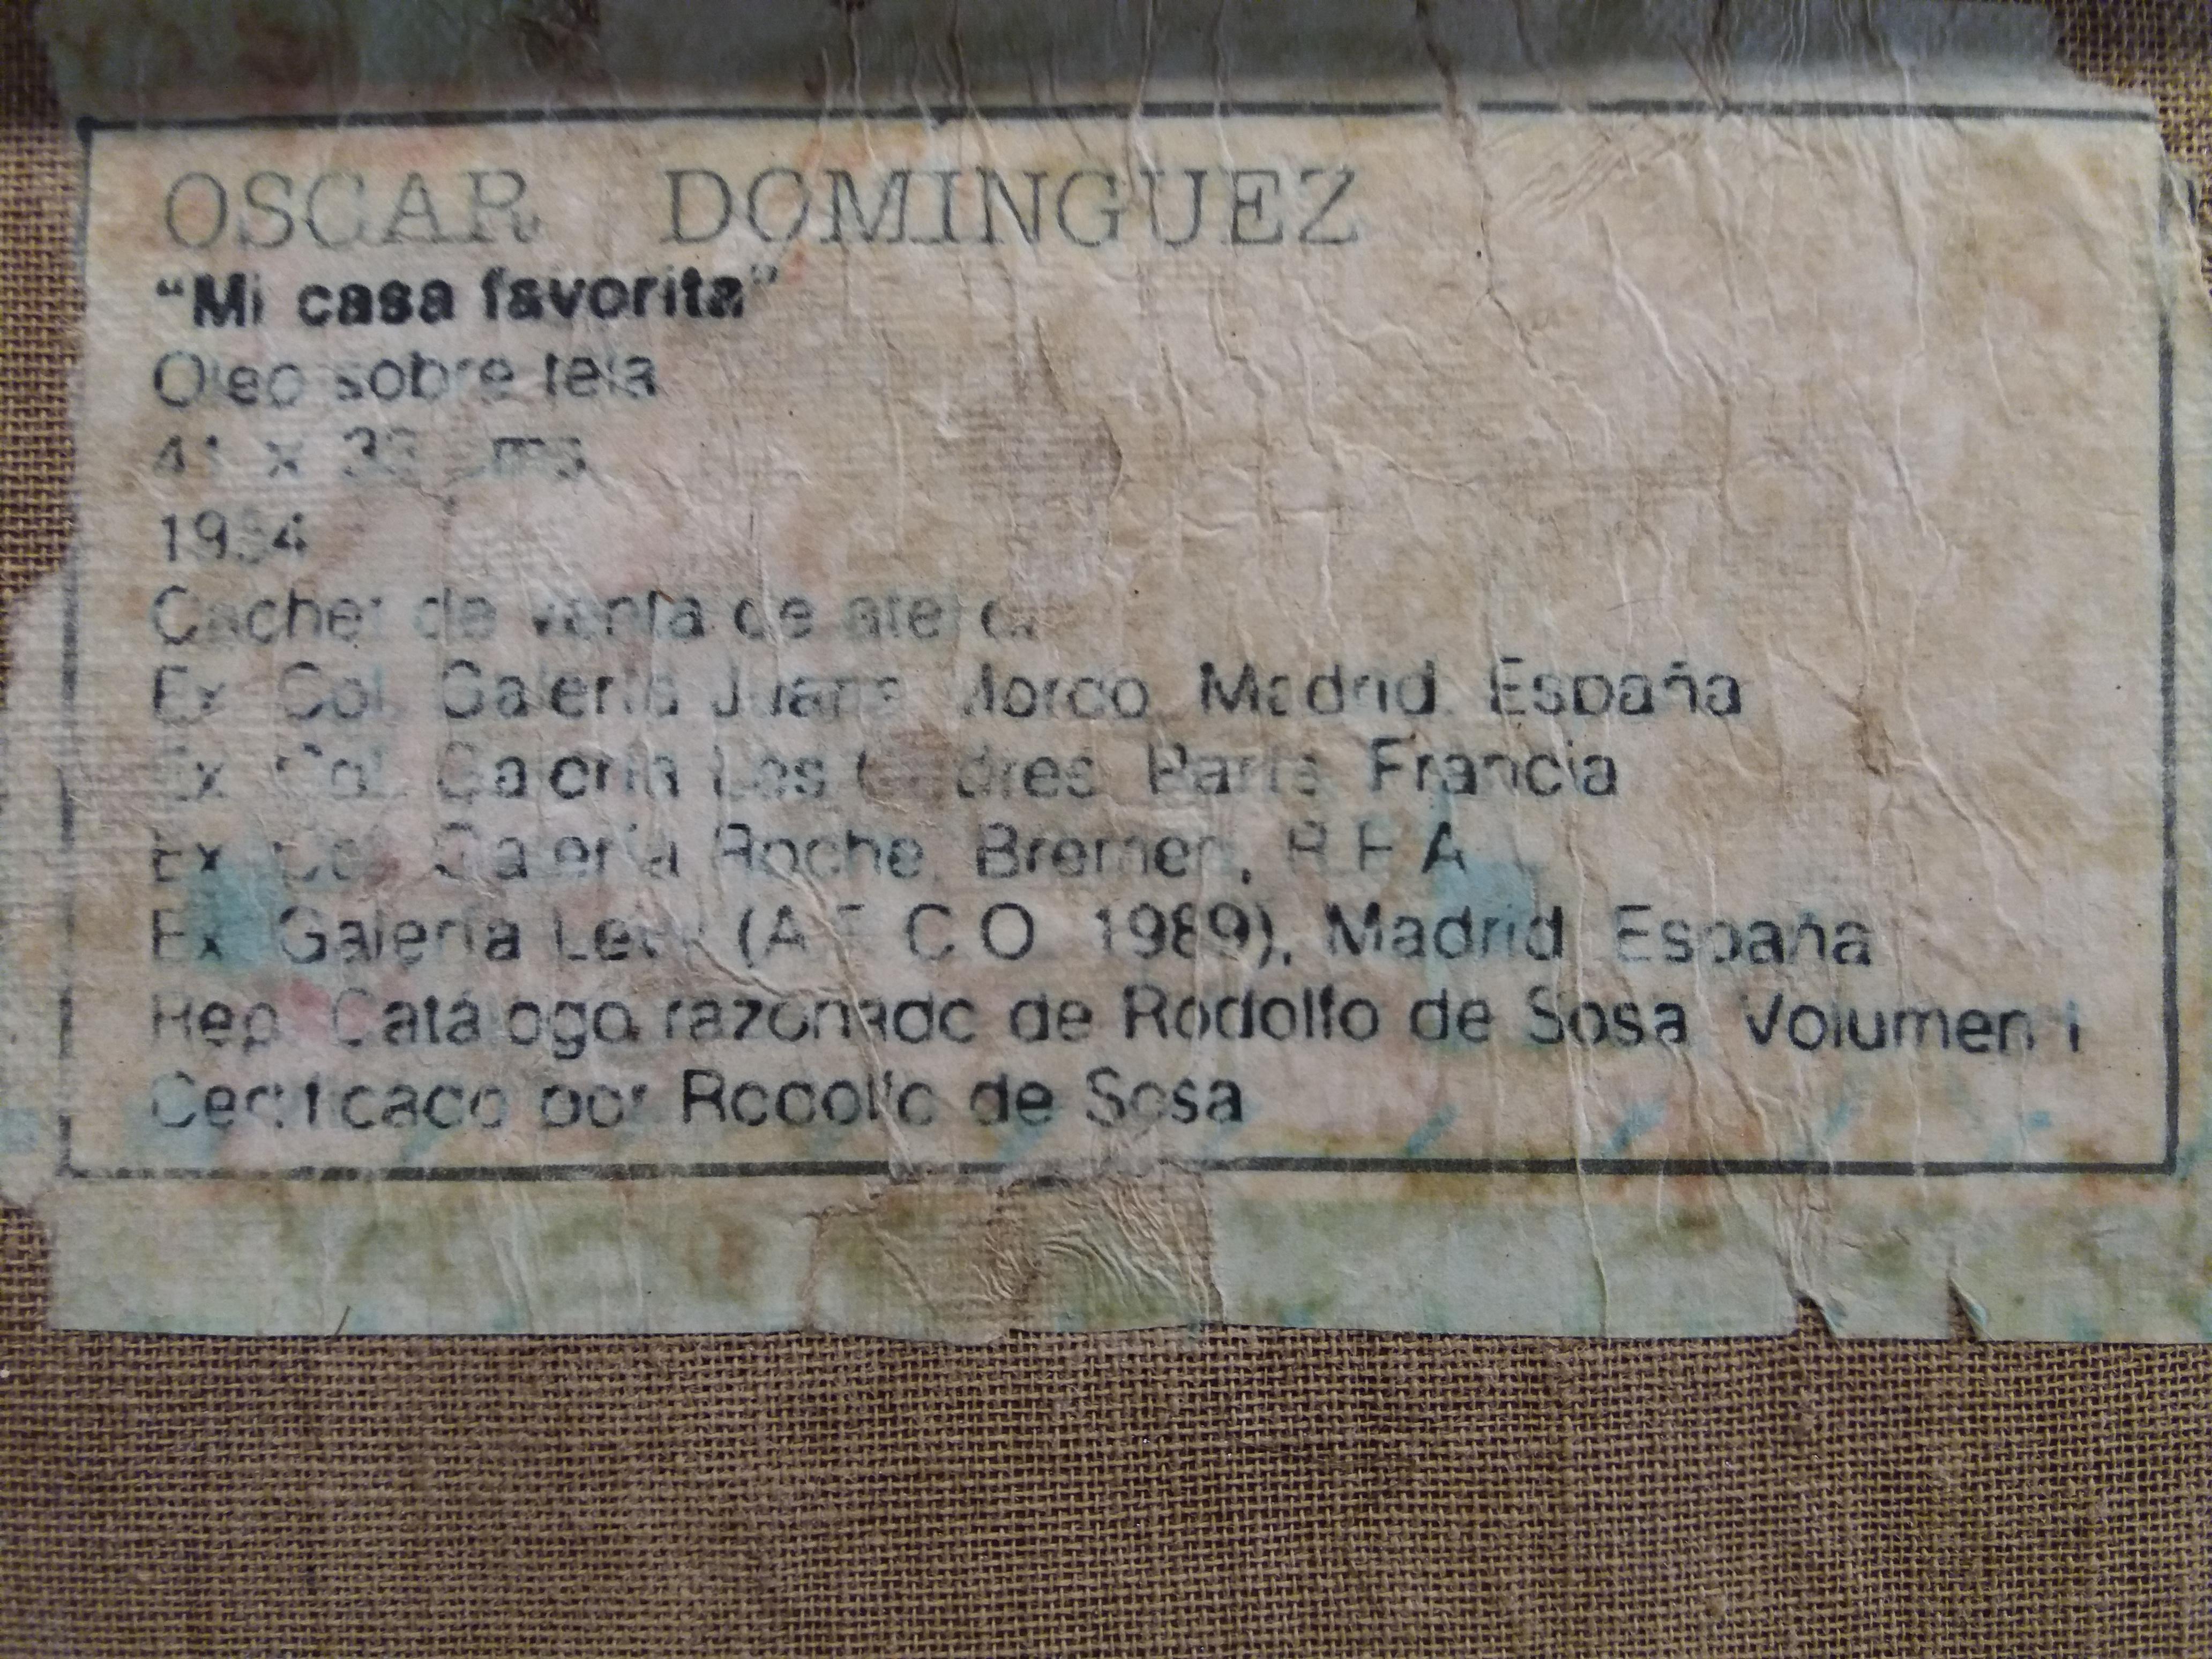 OSCAR DOMINGUEZ
“Mi casa favorita”
Oleo sobre tela
41 x 33 cms
Cachet de venta de atelier
Ex Col Galería Juana Mordo Madrid España
Ex Col Galería Les Paris Francia
Ex Col Galería Roche, Bremen, R F A
Ex Galería (A C O 1989), Madrid España
Rep Catálogo razonado de Rodolfo de Sosa Volumen I
Certificado por Rodolfo de Sosa